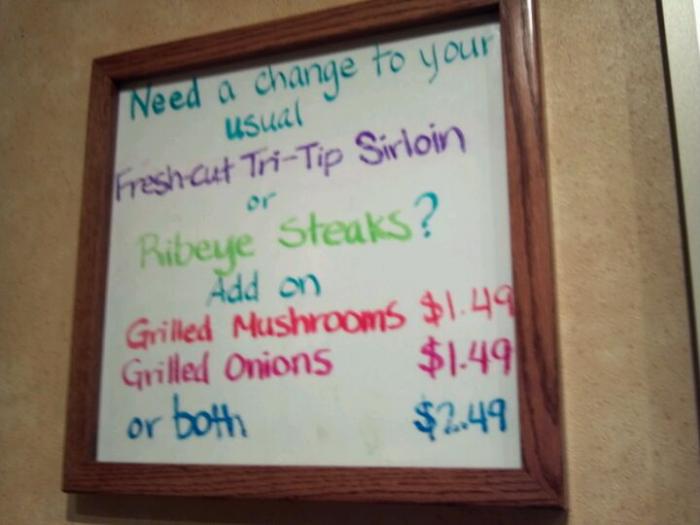 Need a change to your
usual
Fresh-cut Tri-Tip Sirloin
or
Ribeye Steaks?
Add on
Grilled Mushrooms $1.49
Grilled Onions $1.49
or both $2.49